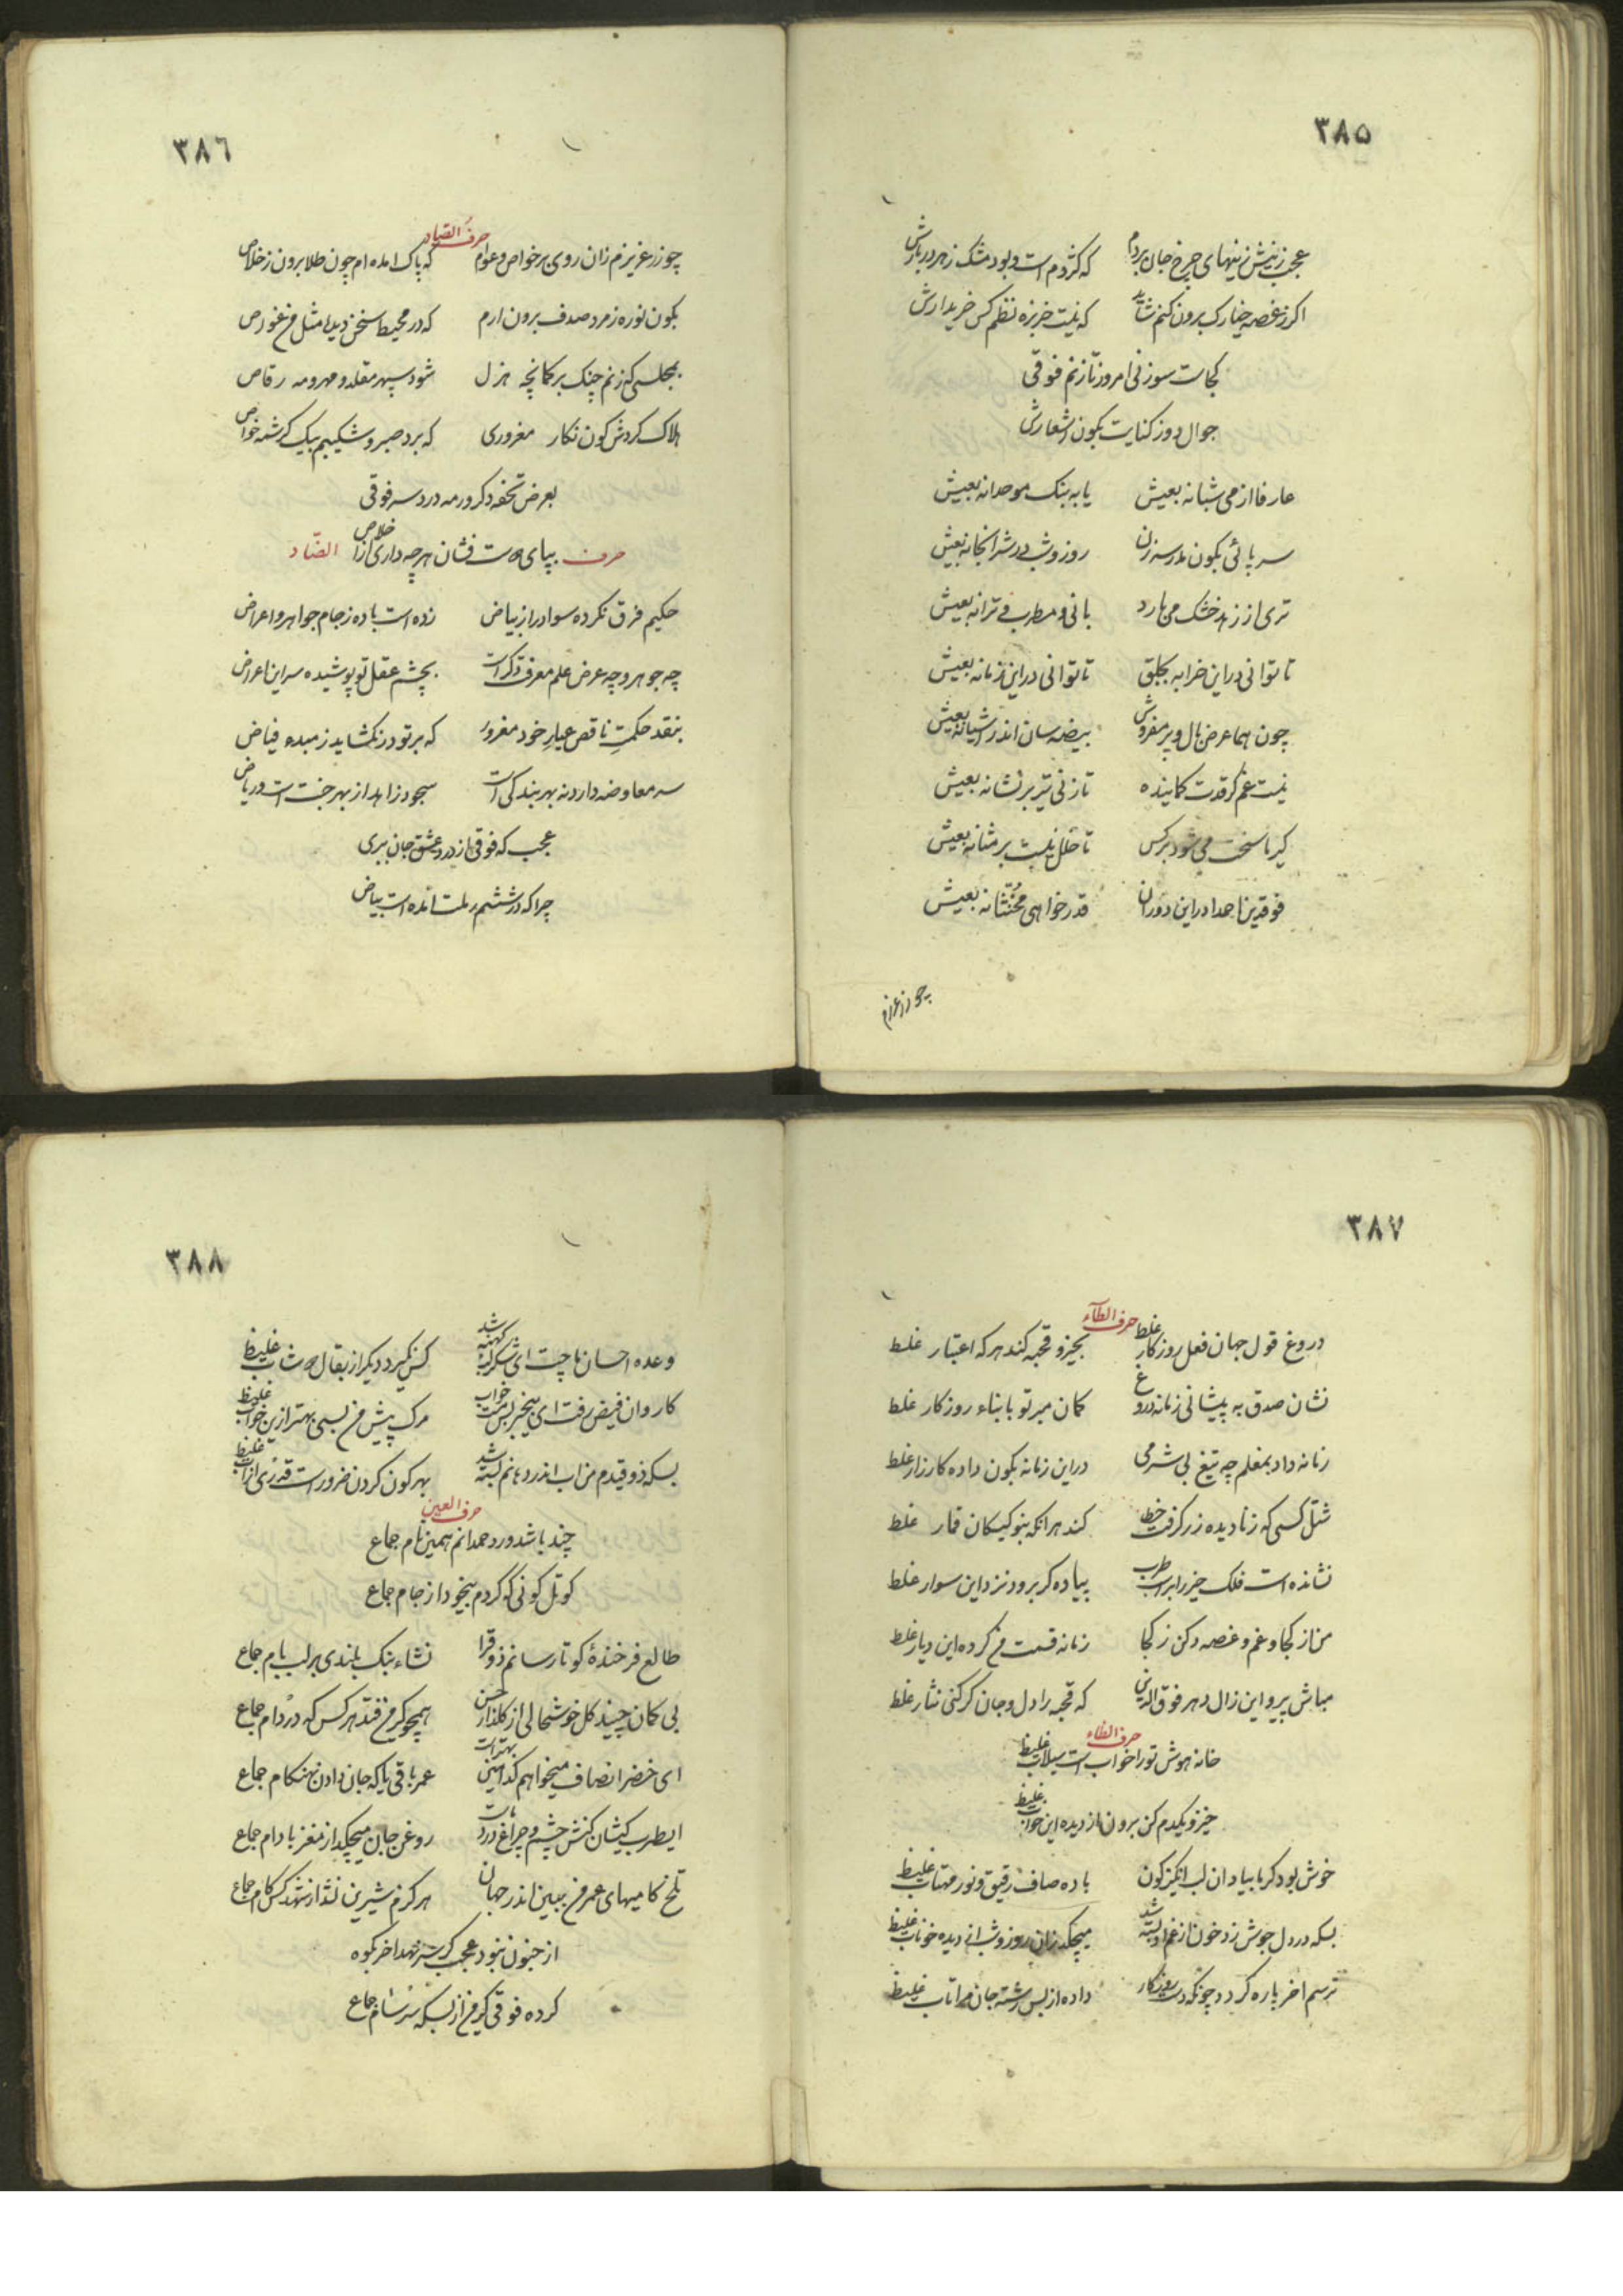 ۳۸۵
عجب ز نیش زنیهای چرخ جان بردم که کژدم است و بود مشک زهر دربارش
اکر ز غصه خیارک برون کنم شاید که نیست خربزه نظم کس خریدارش
کجاست سوزنی امروز تا زنم فوقی
جوال دوز کنایت بکون اشعارش
عارفا از می شبانه بعیش یا به بنک موحدانه بعیش
سر پائی بکون مدرسه زن روز و شب در شرابخانه بعیش
تری از زهد خشک می بارد بانی و مطرب و ترانه بعیش
تا توانی در این خرابه بجلق تا توانی در این زمانه بعیش
چون هما عرض بال و پر مفروش بیضه سان اندر آشیانه بعیش
نیست غم کر قدت کمانیده تا زنی تیر بر نشانه بعیش
کیر تا سخت می شود برکس تا خلل نیست بر مثانه بعیش
فوقدین احدا در این دوران قدر خواهی مخنثانه بعیش
چو زر عزیزم
۳۸۶
حرف الصاد
چو زر عزیزم زان روی بر خواص و عوام که پاک امده ام چون طلا برون ز خلاص
بکون نوره زمرد صدف برون ارم که در محیط سخن دیدا مثل من غواص
بمجلسی که زنم چنک بر کمانچه هزل شود سپهر مقلد و مهر و مه رقاص
هلاک کردش کون نکار مغروری که برد صبر و شکیبم بیک کرشمه خواص
بعرض تحفه دکر ور مه درد سر فوقی
حرف بپای دوست فشان هرچه داری از اخلاص الضاد
حکیم فرق نکرده سواد را ز بیاض زده است باده ز جام جواهر و اعراض
چه جوهر و چه عرض علم معرفت دکر است بچشم عقل تو پوشیده سر این اعراض
بنقد حکمت ناقص عیار خود مغرور که بر تو در نکشاید ز مبدء فیاض
سر معاوضه دارد نه بهر بندکی است سجود زاهد از بهر جنت است و ریاض
عجب که فوقی از درد عشق جان ببری
چرا که در ششم رلت مانده است بیاض
۳۸۷
حرف الطآء
دروغ قول جهان فعل روزکار غلط بجیز و قحبه کند هرکه اعتبار غلط
نشان صدق به پیشانی زمانه دروغ کمان مبر تو بابناء روزکار غلط
زمانه داد بمغلم چه تیغ بی شرمی در این زمانه بکون داده کارزار غلط
شتل کسی که ز نادیده زر کرفت خطی کند هرانکه بنو کیسکان قمار غلط
نشانده است فلک حیز را بر اسب طرب پیاده کر برود نزد این سوار غلط
من از کجا و غم و غصه دکن ز کجا زمانه قسمت من کرده این دیار غلط
مباش پیرو این زال دهر فوق الدین که قحبه را دل و جان کر کنی نثار غلط
حرف الظاء
خانه هوش تو را خواب است سیلاب غلیظ
خیز و یکدم کن برون از دیده این خواب غلیظ
خوش بود کر با بیاد ان لب انکیز کون باده صاف رقیق و نور مهتاب غلیظ
بسکه در دل جوش زد خون از غم او بسته شد میچکد زان روز و شب از دیده خوناب غلیظ
ترسم اخر پاره کردد چونکه دست روزکار داده از بس رشته جان مرا تاب غلیظ
۳۸۸
وعده احسان ما چیست ای شکر لب کهنه شد کس نمیکیرد دیکر از بقال دوشاب غلیظ
کاروان فیض رفت ای بیخبر بس نیست خواب مرک پیش من بسی بهتر از این خواب غلیظ
بسکه ذوقیدم من اب اندر دهانم بسته شد بهر کون کردن ضرور است قدری از اب غلیظ
حرف العین
چند باشد ورد حمدانم همین نام جماع
کو تل کونی که کردم بیخود از جام جماع
طالع فرخنده کو تا رسانم ذوق را نشاء بنک بلندی بر لب بام جماع
بی کمان چیند کل خوشحالی از کلذار حسن همچو کیر من فتد هرکس که در دام جماع
ای خضر انصاف میخواهم کدامین بهتر است عمر باقی یا که جان دادن بهنکام جماع
ایطرب کیشان کنش چشم و چراغ دردهاست روغن جان میچکد از مغز بادام جماع
تلخ کامیهای عمر من ببین اندر جهان هرکزم شیرین نشد از شهد کس کام جماع
از جنون نبود عجب کر سر نهد اخر بکوه
کرده فوقی کیر من از بسکه سرسام جماع